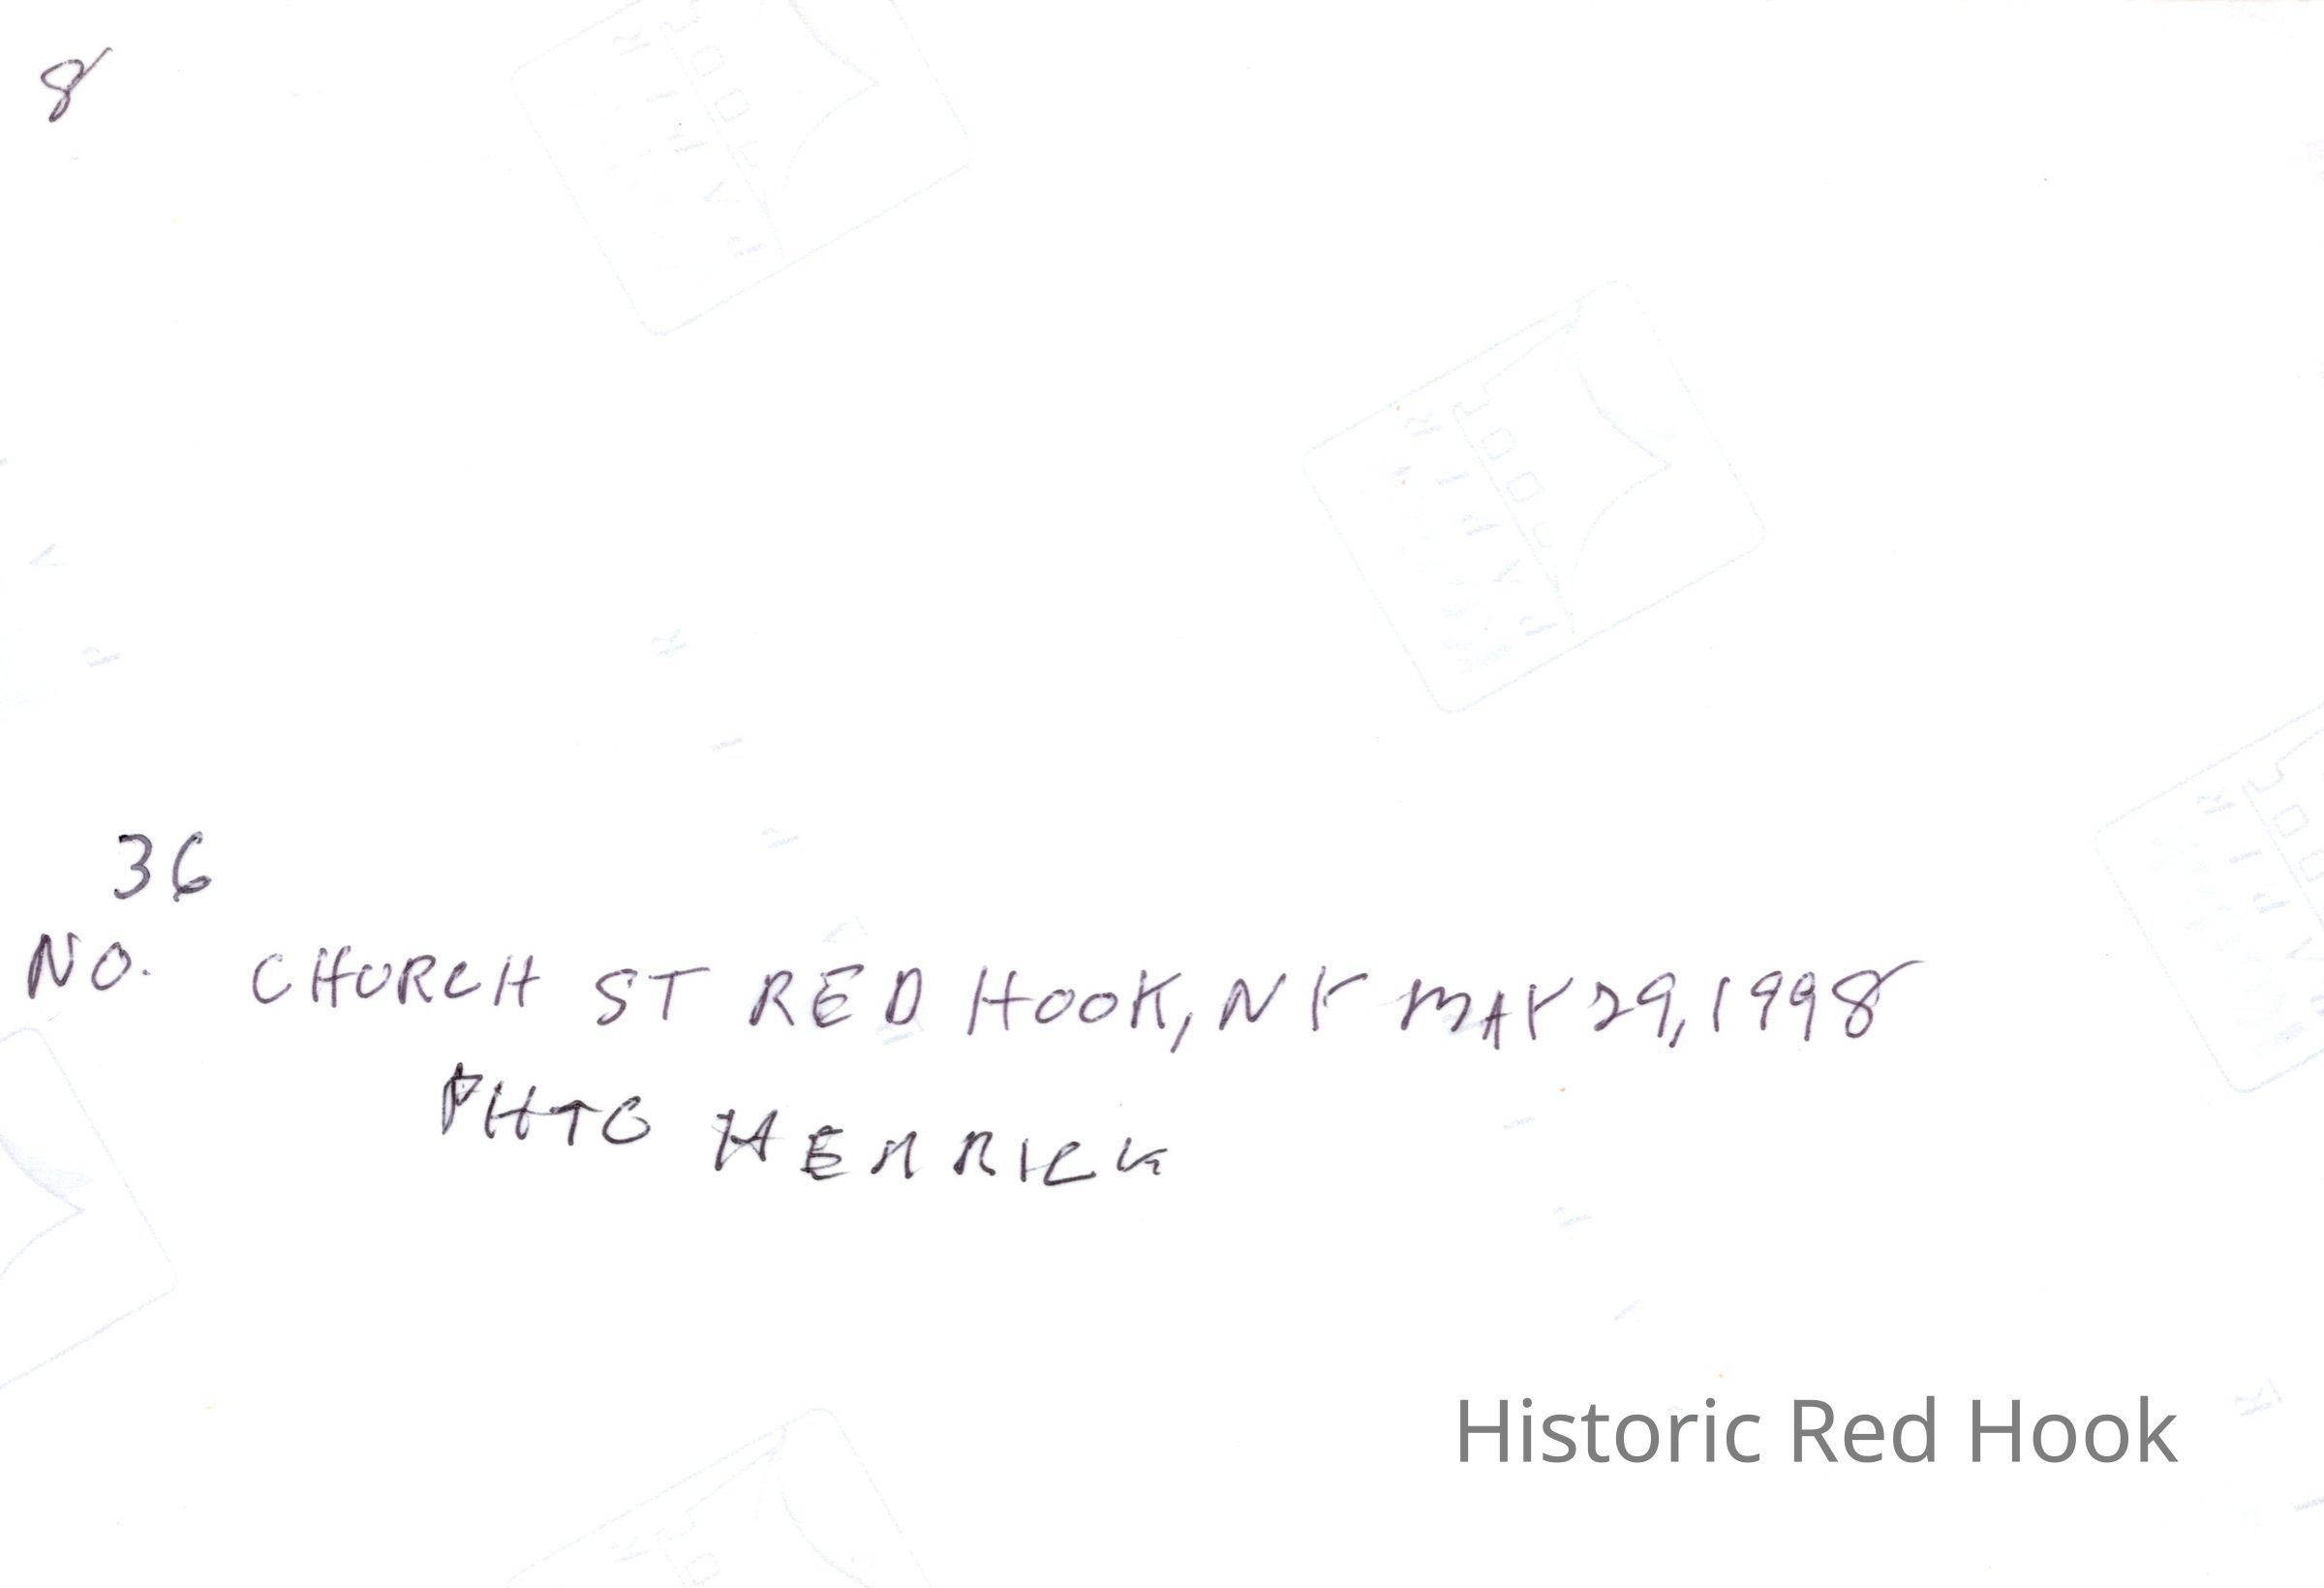 8
36
NO. CHURCH ST RED HOOK, NY MAY 29, 1998
PHTO HERRICK
Historic Red Hook